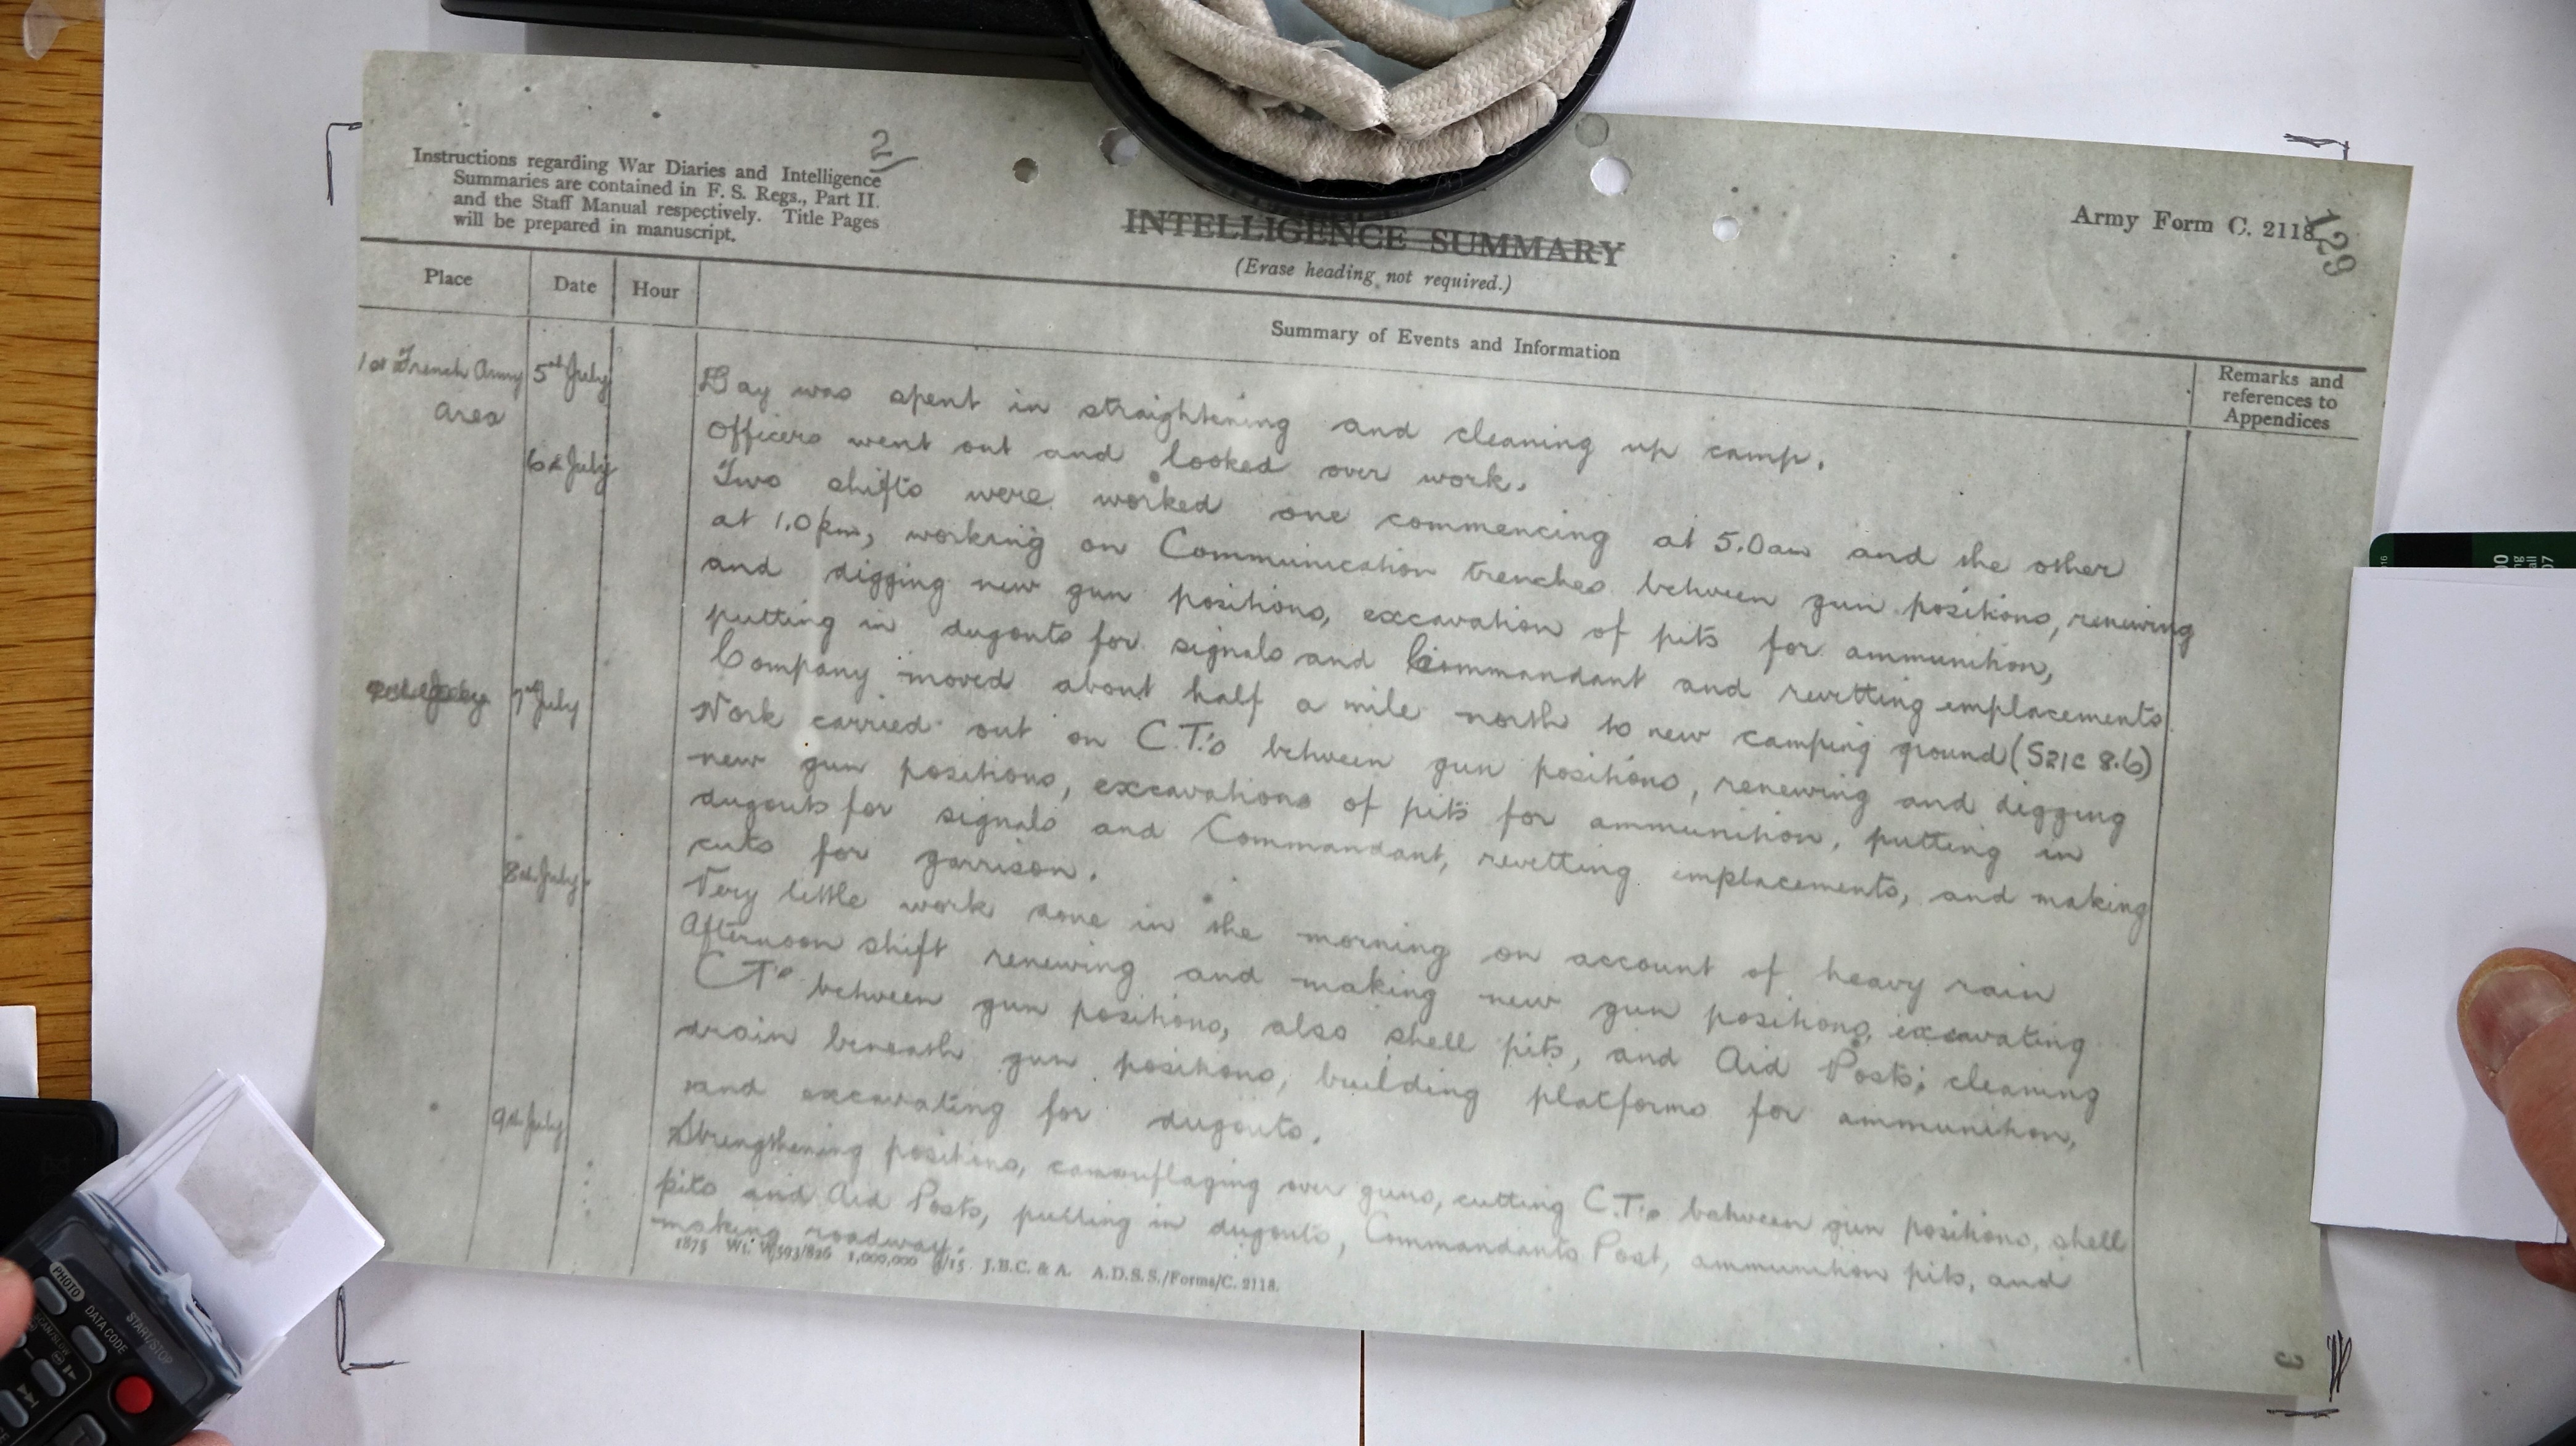 2
Instructions regarding War Diaries and Intelligence
Summaries are contained in F. S. Regs., Part II.
and the Staff Manual respectively. Title Pages
will be prepared in manuscript.
INTELLIGENCE SUMMARY
(Erase heading not required.)
Army Form C. 2118
129
Place
Date
Hour
Summary of Events and Information
Remarks and
references to
Appendices
1st French Army
Area
5th July
Day was spent in straightening and cleaning up camp.
Officers went out and looked over work.
6th July
Two shifts were worked one commencing at 5.0am and the other
at 1.0pm, working on Communication trenches between gun positions, renewing
and digging new gun positions, excavation of pits for ammunition,
putting in dugouts for signals and Commandant and revetting emplacements
7th July
Company moved about half a mile north to new camping ground (S21c 8.6)
Work carried out on C.T.'s between gun positions, renewing and digging
new gun positions, excavations of pits for ammunition, putting in
dugouts for signals and Commandant, revetting emplacements, and making
cuts for garrison.
8th July
Very little work done in the morning on account of heavy rain
Afternoon shift renewing and making new gun positions, excavating
C T's between gun positions, also shell pits, and Aid Posts; cleaning
drain beneath gun positions, building platforms for ammunition,
and excavating for dugouts.
9th July
Strengthening positions, camouflaging over guns, cutting C.T.s between gun positions, shell
pits and Aid Posts, putting in dugouts, Commandants Post, ammunition pits, and
making roadway.
1875 Wt. W593/826 1,000,000 4/15 J.B.C. & A. A.D.S.S./Forms/C. 2118.
3
PHOTO
DATA CODE
START/STOP
SCAN/SLOW